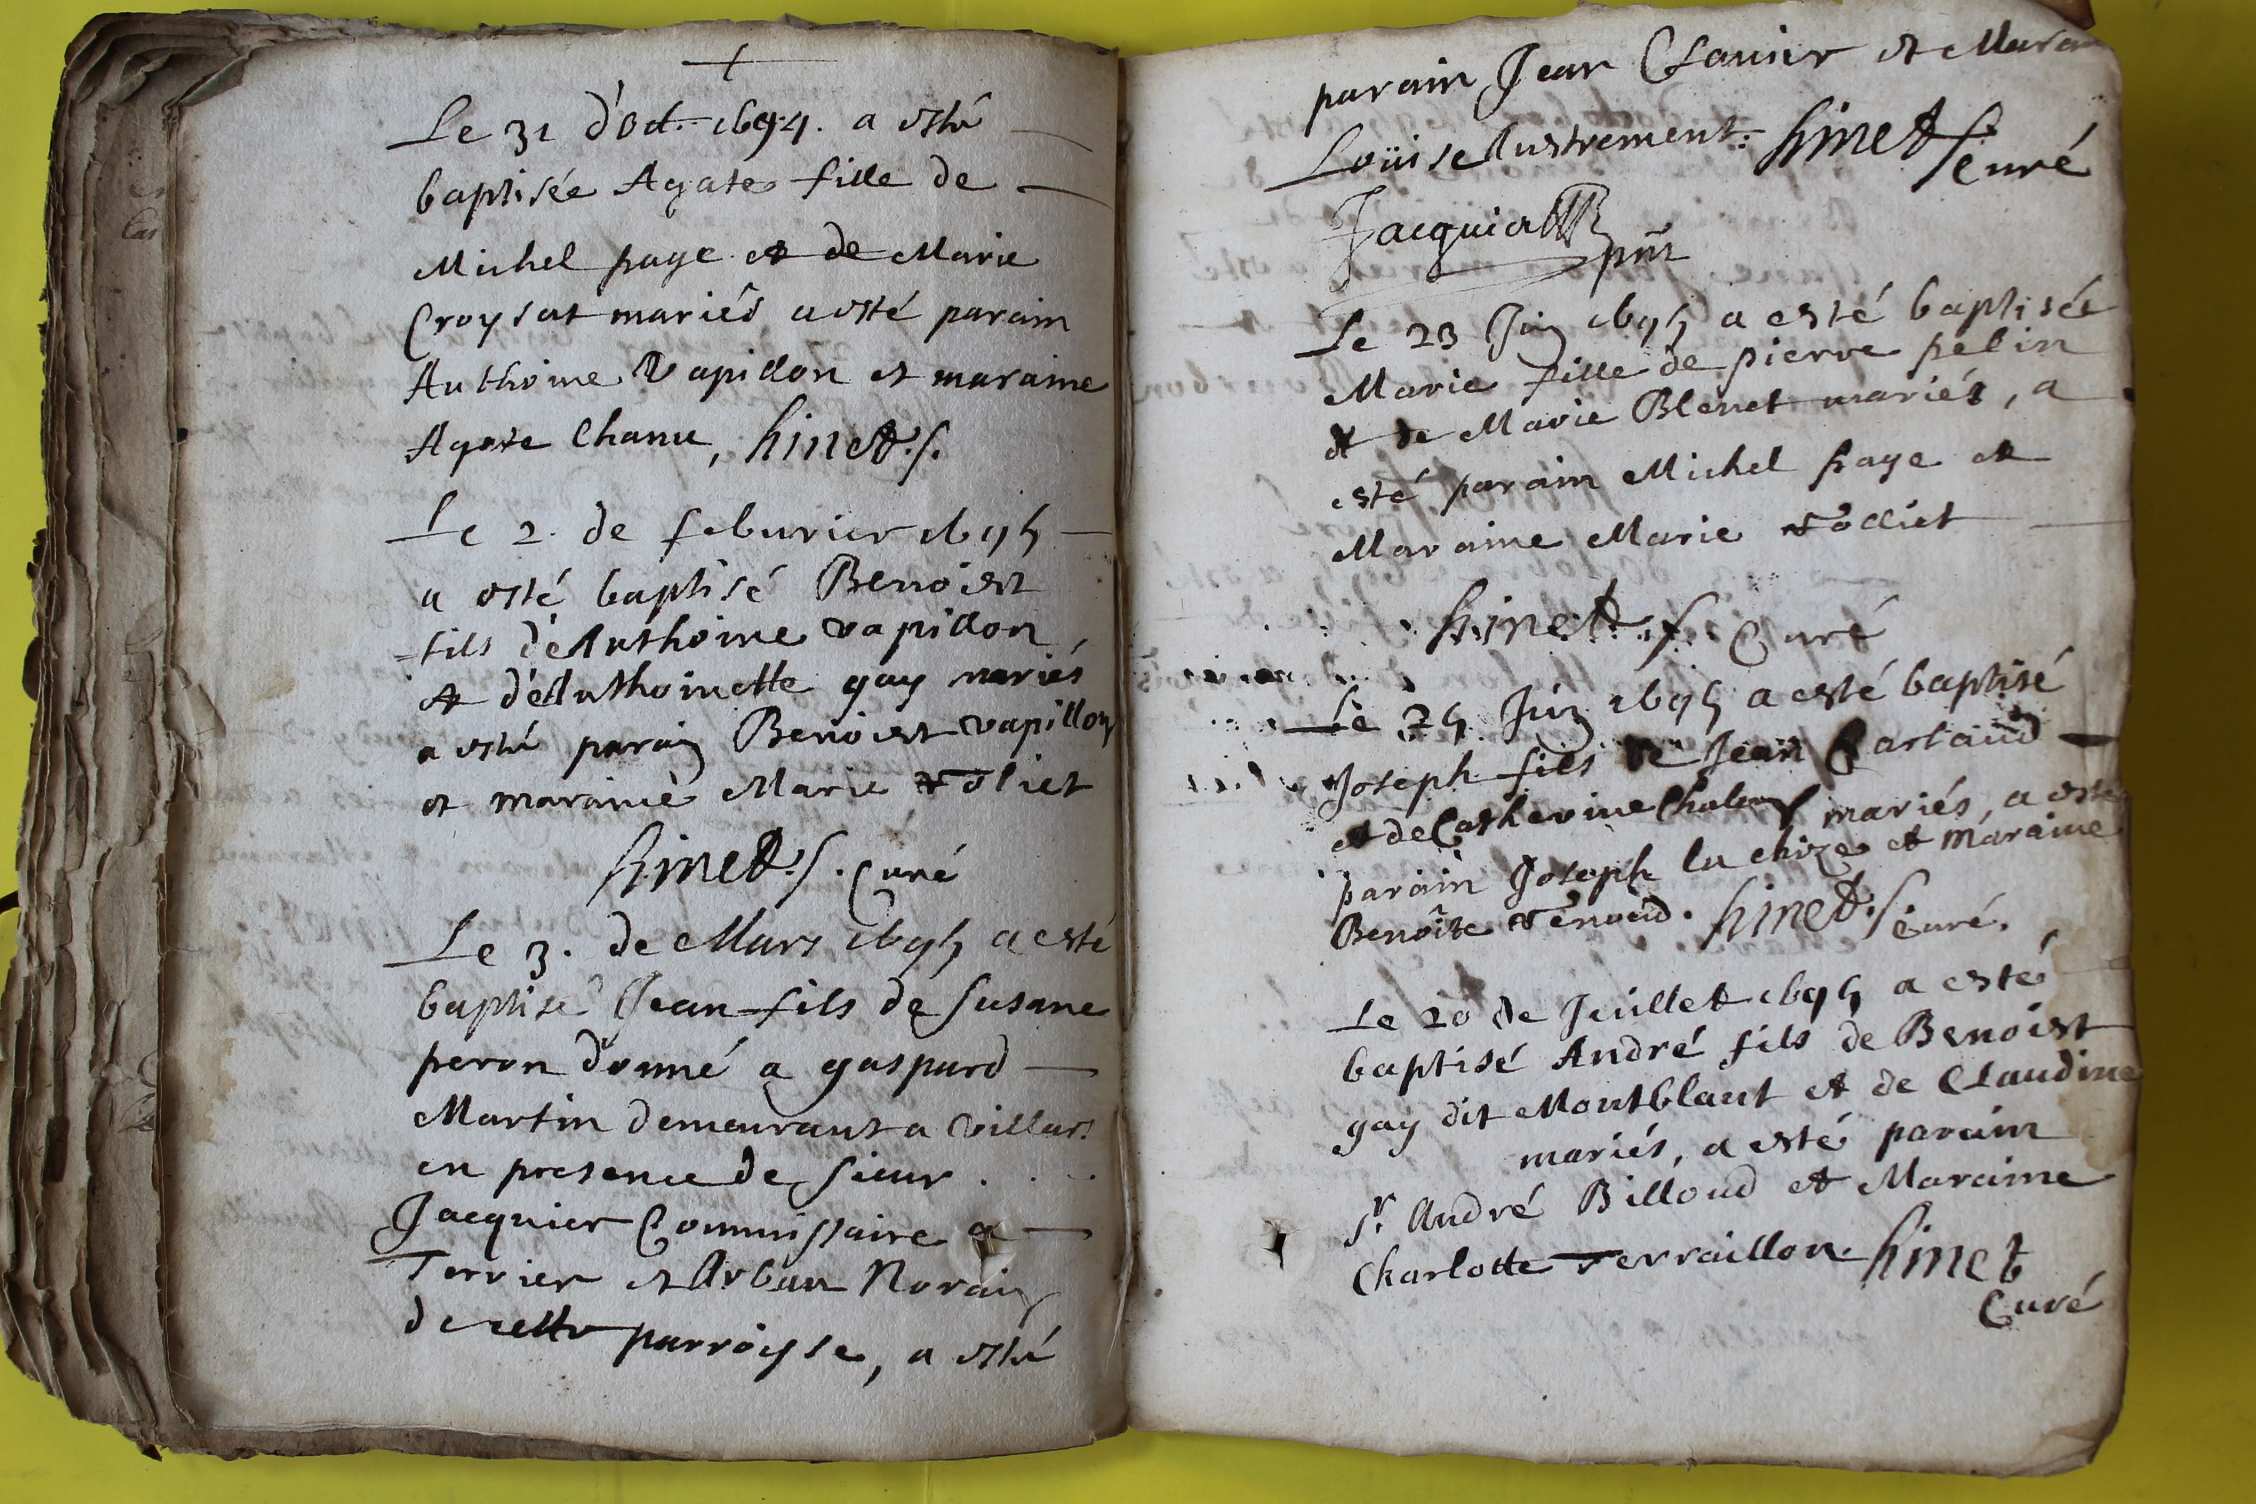 Le 31 d'Oct. 1694. a esté
baptisée Agate fille de
Michel page et de Marie
Croysat mariés a esté parain
Anthoine Vapillon et maraine
Agate Chanu, hinet.
Le 2. de feburier 1695
a esté baptisé Benoist
fils d'Anthoine vapillon
et d'Anthoinette gay mariés
a esté parain Benoist vapillon
et maraine Marie Voliet
hinet. Curé
Le 3. de Mars 1695 a esté
baptisé Jean fils de Susane
peron donné a gaspard
Martin demeurant a villars
en presence de sieur
Jacquier Commissaire a
Terrier et Urban Norain
de cette parroisse, a esté
parain Jean Clavier et Marai
Loüise hinet Curé
Jacquier pnt
Le 23 Juin 1695 a esté baptisée
Marie fille de pierre pelin
et de Marie Blenet mariés, a
esté parain Michel page et
Maraine Marie Volliet
hinet. Curé
Le 25 Juin 1695 a esté baptisé
Joseph fils de Jean
et de Catherine mariés, a esté
parain Joseph la chize et Maraine
Benoîte hinet. Curé.
Le 20 de Juillet 1695 a esté
baptisé André fils de Benoist
gay dit Montblant et de Claudine
mariés, a esté parain
Sr. André Billoud et Maraine
Charlotte verraillon. hinet
Curé